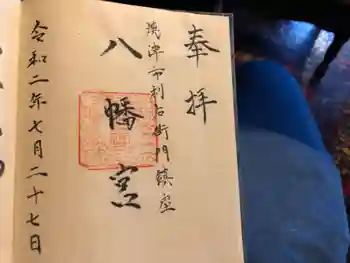 奉拝
焼津市利右衛門鎮座
八幡宮
令和二年七月二十七日